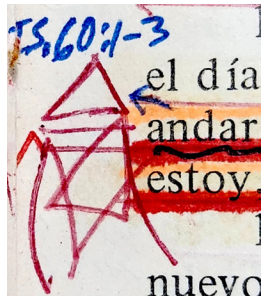 Is. 60:1-3
el día
andar
estoy.
nuevo